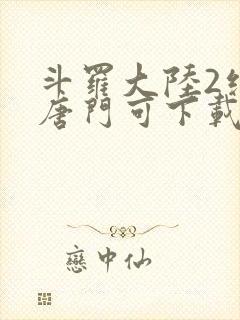 斗羅大陸2
唐門可下載
戀中仙